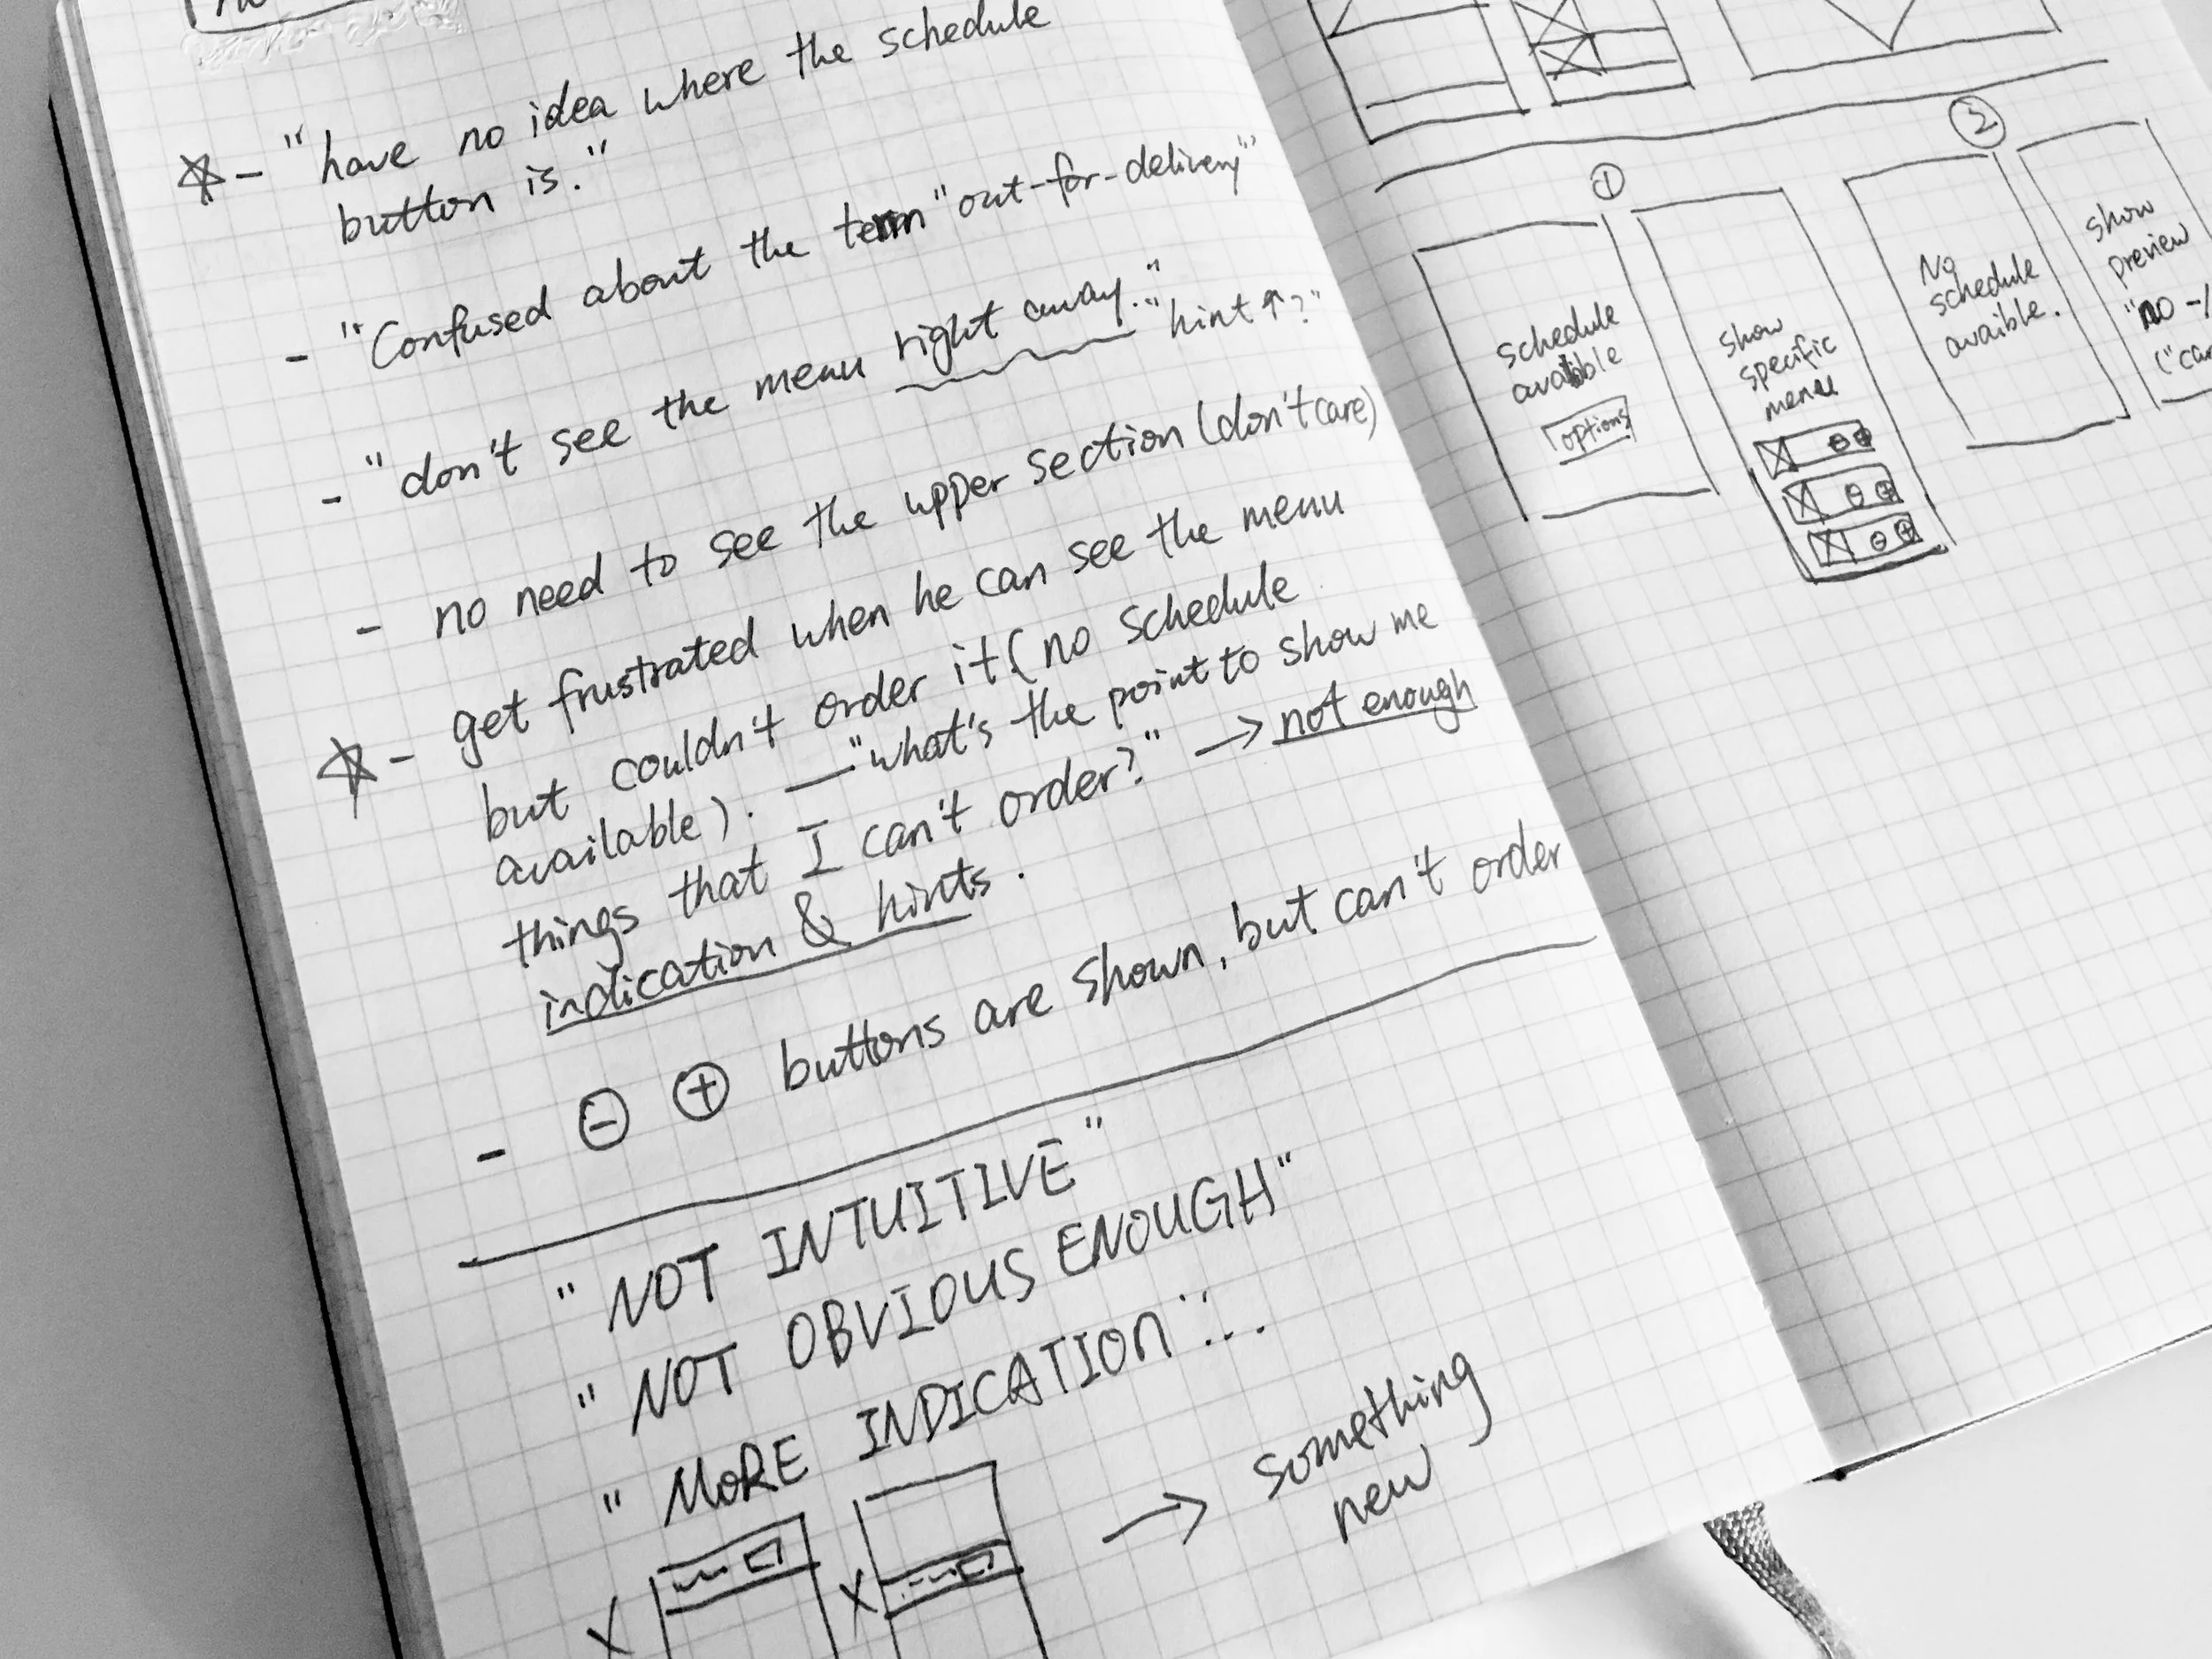 ☆- "have no idea where the schedule
button is."
- "Confused about the term "out-for-delivery""
- "don't see the menu right away." "hint↑?"
- no need to see the upper section (don't care)
☆- get frustrated when he can see the menu
but couldn't order it (no schedule
available). — "what's the point to show me
things that I can't order?" → not enough
indication & hints.
- ⊖ ⊕ buttons are shown, but can't order
"NOT INTUITIVE"
"NOT OBVIOUS ENOUGH"
"MORE INDICATION"...
X X → something
new
①
schedule
available
options
show
specific
menu
②
No
schedule
avaible.
show
preview
"no